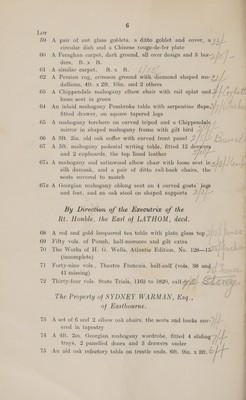 6
Lot
59 A pair of cut glass goblets, a ditto goblet and cover, a
circular dish and a Chinese rouge-de-fer plate
60 A Feraghan carpet, dark ground, all over design and 3 bor-
ders, ft. x ft.
61 A similar carpet, ft. x ft.
62 A Persian rug, crimson ground with diamond shaped me-
dallions, 4ft. x 2ft. 10in. and 2 others
63 A Chippendale mahogany elbow chair with rail splat and
loose seat in green
64 An inlaid mahogany Pembroke table with serpentine flaps,
fitted drawer, on square tapered legs
65 A mahogany torchere on carved tripod and a Chippendale
mirror in shaped mahogany frame with gilt bird
66 A 5ft. 2in. old oak coffer with carved front panel
67 A 5ft. mahogany pedestal writing table, fitted 12 drawers
and 2 cupboards, the top lined leather
67A A mahogany and satinwood elbow chair with loose seat in
silk damask, and a pair of ditto rail-back chairs, the
seats covered to match
67A A Georgian mahogany oblong seat on 4 carved goats' legs
and feet, and an oak stool on shaped supports
By Direction of the Executrix of the
Rt. Honble. the Earl of LATHOM, decd.
68 A red and gold lacquered tea table with plate glass top
69 Fifty vols. of Punch, half-morocco and gilt extra
70 The Works of H. G. Wells, Atlantic Edition, No. 128—15
(incomplete)
71 Forty-nine vols., Theatre Francais, half-calf (vols. 38 and
41 missing)
72 Thirty-four vols. State Trials, 1163 to 1820, calf
The Property of SYDNEY WARMAN, Esq.,
of Eastbourne.
73 A set of 6 and 2 elbow oak chairs, the seats and backs cov-
ered in tapestry
74 A 4ft. 2in. Georgian mahogany wardrobe, fitted 4 sliding
trays, 2 panelled doors and 3 drawers under
75 An old oak refectory table on trestle ends, 6ft. 9in. x 2ft.